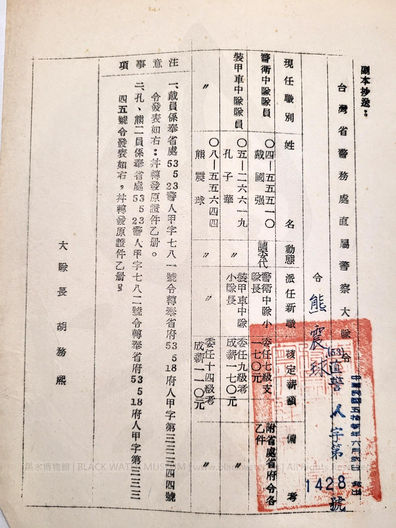 副本抄送：
台灣省警務處直屬警察大隊令
令 熊震球
直警人字第1428號
現任職別 姓名 動態 派任新職 核定薪級 備考
警衛中隊隊員 〇四一五五五一〇 戴國强 警衛中隊小隊長 委任七級支一七〇元 附省處省府令各乙件
裝甲車中隊隊員 〇五一二六六一九 孔子華 〃 裝甲車中隊小隊長 委任九級考成薪一七〇元 〃
〃 〇八一五五六四四 熊震球 〃 〃 委任十四級考成薪一一〇元 〃
注意事項
一、戴員係奉省處53 5 23警人甲字七八一號令轉奉省府53 5 18府人甲字第三三三四四號
令發表如右，并轉發原證件乙册。
二、孔、熊二員係奉省處53 5 23警人甲字七八二號令轉奉省府53 5 18府人甲字第三三三
四五號令發表如右，并轉發原證件乙册。
大隊長 胡務熙
黑水博物館 | BLACK WATER MUSEUM | All Rights Reserved